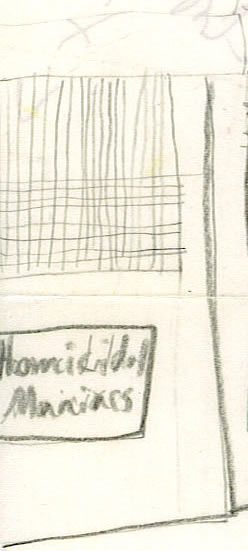 Homicidal
Maniacs